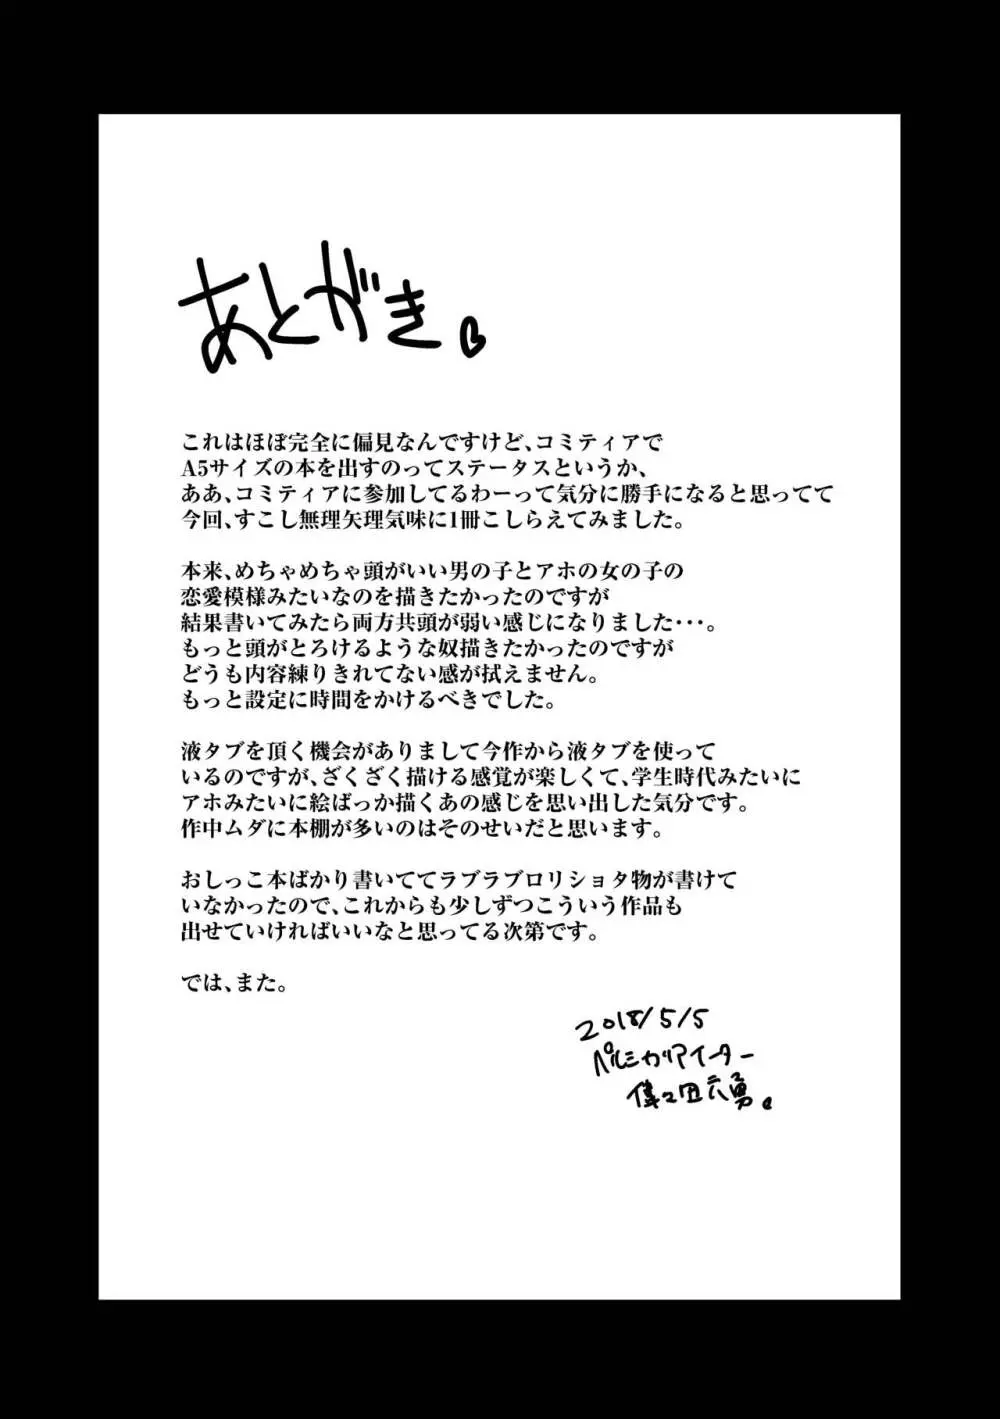 あとがき。
これはほぼ完全に偏見なんですけど、コミティアで
A5サイズの本を出すのってステータスというか、
ああ、コミティアに参加してるわーって気分に勝手になると思ってて
今回、すこし無理矢理気味に1冊こしらえてみました。
本来、めちゃめちゃ頭がいい男の子とアホの女の子の
恋愛模様みたいなのを描きたかったのですが
結果書いてみたら両方共頭が弱い感じになりました・・・。
もっと頭がとろけるような奴描きたかったのですが
どうも内容練りきれてない感が拭えません。
もっと設定に時間をかけるべきでした。
液タブを頂く機会がありまして今作から液タブを使って
いるのですが、ざくざく描ける感覚が楽しくて、学生時代みたいに
アホみたいに絵ばっか描くあの感じを思い出した気分です。
作中ムダに本棚が多いのはそのせいだと思います。
おしっこ本ばかり書いててラブラブロリショタ物が書けて
いなかったので、これからも少しずつこういう作品も
出せていければいいなと思ってる次第です。
では、また。
2018/5/5
パルミガリアイーター